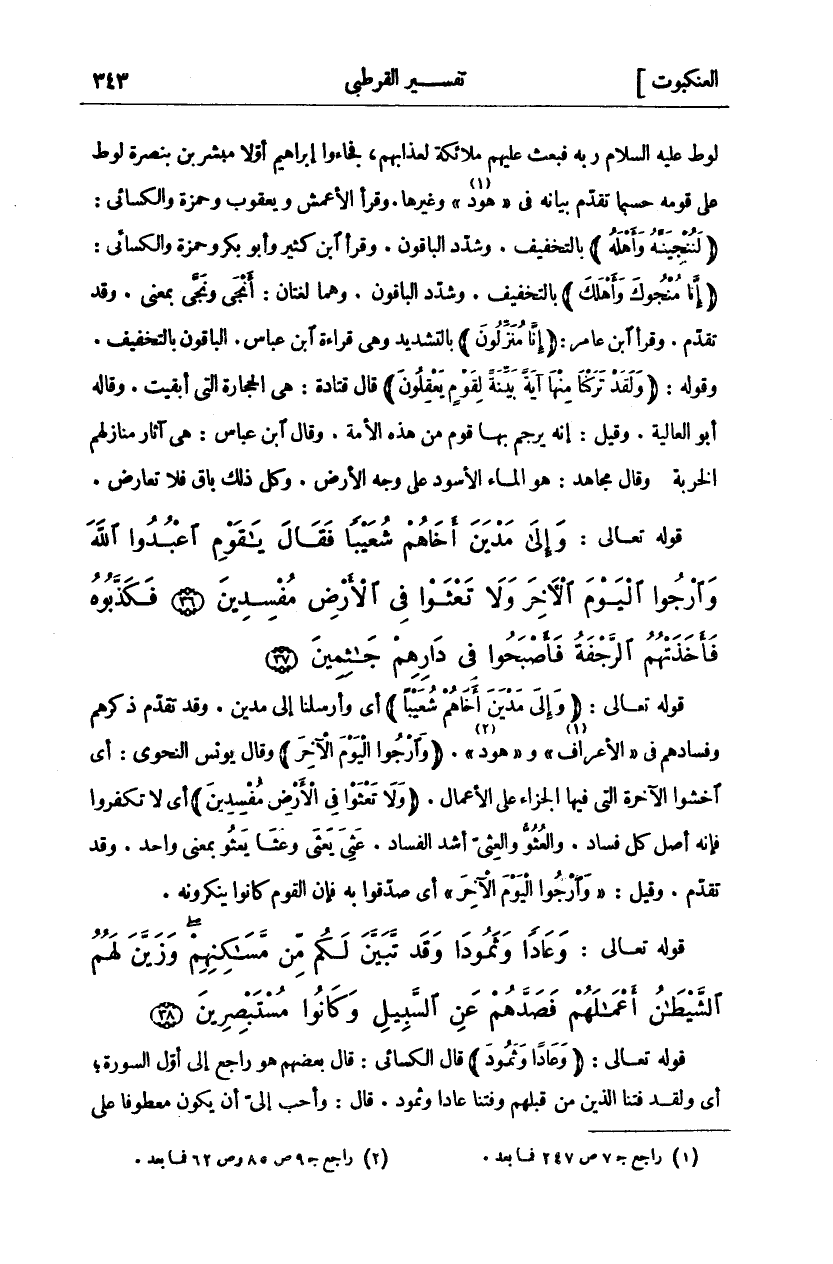 العنكبوت ] تفسير القرطبى ٣٤٣
لوط عليه السلام ربه فبعث عليهم ملائكة لعذابهم، فجاءوا إبراهيم أوّلا مبشرين بنصرة لوط
على قومه حسبما تقدّم بيانه فى « هود (١) » وغيرها. وقرأ الأعمش ويعقوب وحمزة والكسائى :
﴿ لَنُنْجِيَنَّهُ وَأَهْلَهُ ﴾ بالتخفيف . وشدّد الباقون . وقرأ آبن كثير وأبو بكر وحمزة والكسائى :
﴿ إِنَّا مُنْجُوكَ وَأَهْلَكَ ﴾ بالتخفيف . وشدّد الباقون . وهما لغتان : أَنْجَى وَنَجَّى بمعنى . وقد
تقدّم . وقرأ آبن عامر : ﴿ إِنَّا مُنَزِّلُونَ ﴾ بالتشديد وهى قراءة آبن عباس. الباقون بالتخفيف .
وقوله : ﴿ وَلَقَدْ تَرَكْنَا مِنْهَا آيَةً بَيِّنَةً لِقَوْمٍ يَعْقِلُونَ ﴾ قال قتادة : هى الحجارة التى أبقيت . وقاله
أبو العالية . وقيل : إنه يرجم بها قوم من هذه الأمة . وقال آبن عباس : هى آثار منازلهم
الخربة وقال مجاهد : هو الماء الأسود على وجه الأرض . وكل ذلك باق فلا تعارض .
قوله تعالى : وَإِلَىٰ مَدْيَنَ أَخَاهُمْ شُعَيْبًا فَقَالَ يَـٰقَوْمِ ٱعْبُدُوا ٱللَّهَ
وَٱرْجُوا ٱلْيَوْمَ ٱلْآخِرَ وَلَا تَعْثَوْا فِى ٱلْأَرْضِ مُفْسِدِينَ ﴿٣٦﴾ فَكَذَّبُوهُ
فَأَخَذَتْهُمُ ٱلرَّجْفَةُ فَأَصْبَحُوا فِى دَارِهِمْ جَـٰثِمِينَ ﴿٣٧﴾
قوله تعالى : ﴿ وَإِلَىٰ مَدْيَنَ أَخَاهُمْ شُعَيْبًا ﴾ أى وأرسلنا إلى مدين . وقد تقدّم ذكرهم
وفسادهم فى « الأعراف (١) » و « هود (٢) » . ﴿ وَٱرْجُوا الْيَوْمَ الْآخِرَ ﴾ وقال يونس النحوى : أى
آخشوا الآخرة التى فيها الجزاء على الأعمال . ﴿ وَلَا تَعْثَوْا فِى الْأَرْضِ مُفْسِدِينَ ﴾ أى لا تكفروا
فإنه أصل كل فساد . والعُثُوُّ والعِثىّ أشد الفساد . عَثِىَ يَعْثَى وعَثَا يَعْثُو بمعنى واحد . وقد
تقدّم . وقيل : « وَٱرْجُوا الْيَوْمَ الْآخِرَ » أى صدّقوا به فإن القوم كانوا ينكرونه .
قوله تعالى : وَعَادًا وَثَمُودَا وَقَد تَّبَيَّنَ لَكُم مِّن مَّسَـٰكِنِهِمْ ۖ وَزَيَّنَ لَهُمُ
ٱلشَّيْطَـٰنُ أَعْمَـٰلَهُمْ فَصَدَّهُمْ عَنِ ٱلسَّبِيلِ وَكَانُوا مُسْتَبْصِرِينَ ﴿٣٨﴾
قوله تعالى : ﴿ وَعَادًا وَثَمُودَ ﴾ قال الكسائى : قال بعضهم هو راجع إلى أوّل السورة ؛
أى ولقد فتنا الذين من قبلهم وفتنا عادا وثمود . قال : وأحب إلىّ أن يكون معطوفا على
(١) راجع جـ ٧ ص ٢٤٧ فما بعد . (٢) راجع جـ ٩ ص ٨٥ وص ٦٢ فما بعد .